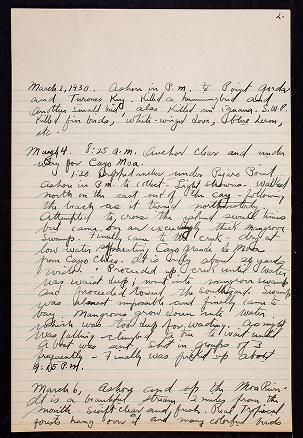 2.
March 2, 1930. Ashore in P.M. to Point Gorda
and Turones Key. Killed a hummingbird and
another small bird, also killed an iguana. S.W.P.
killed five birds, white-winged dove, blue heron,
etc.
May 4. 8:25 a.m. Anchor clear and under
way for Cayo Moa.
1:20 Dropped anchor under Pajaro Point.
Ashore in P.M. to collect - Light showers - walked
north on the east end of the cayo following
the beach as it turned northwesterly.
Attempted to cross the island several times
but came on an exceedingly thick mangrove
swamp. Finally came to the creek - clear at
low water separating Cayo Grande de Moa
from Cayo Chico. It is only about 25 yards
wide. Proceeded up creek until water
was waist deep, went into mangrove swamp
and proceeded toward the southeast. Swamp
was almost impassible and finally came to
bay. Mangroves grow down into water
which was too deep for wading. As night
was falling climbed to tree to wait until
a boat was sent. Shot in groups of 3
frequently - Finally was picked up about
9:15 P.M.
March 6, Ashore and up the Moa River.
It is a beautiful stream, 2 miles from the
mouth. Swift clear and fresh. Real tropical
forests hang over it and many colorful birds